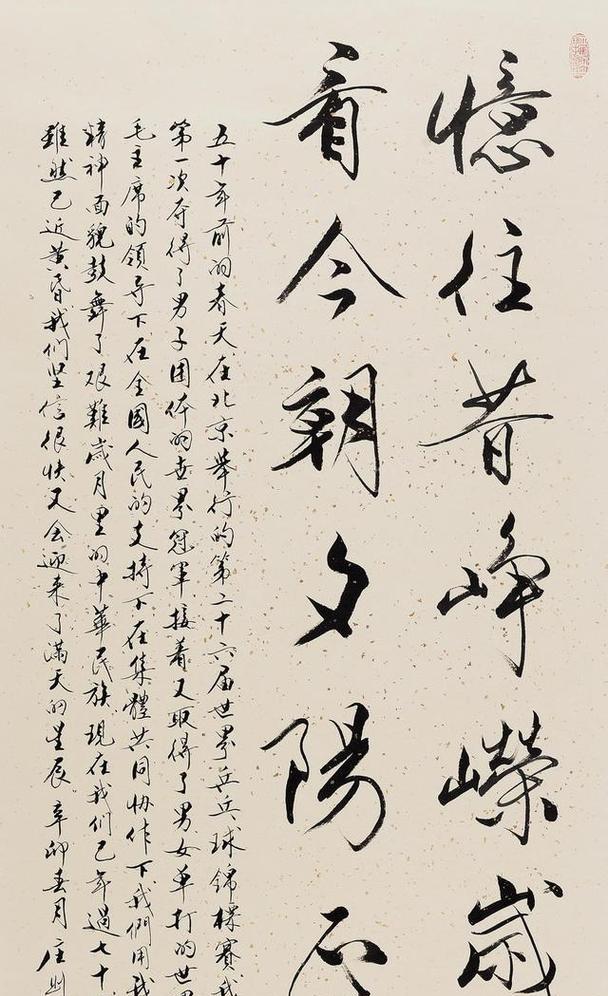 憶往昔崢嶸歲
看今朝夕陽正
五十年前的春天在北京舉行的第二十六届世界乒乓球錦標賽我
第一次夺得了男子团体的世界冠軍接着又取得了男女单打的世界
毛主席的領导下在全國人民的支持下在集體共同协作下我們用我
精神面貌鼓舞了艰難歲月里的中華民族現在我们已年過七十
雖然已近黄昏我们坚信很快又会迎来了满天的星辰辛卯春月庄则